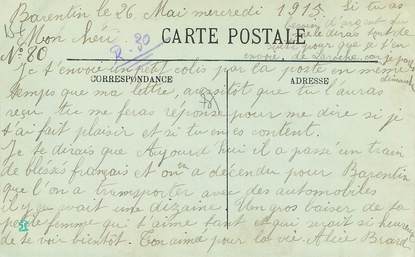 Barentin le 26 Mai mercredi 1915
Si tu as
besoin d'argent
Mon cheri
N° 80
R. 80
CARTE POSTALE
CORRESPONDANCE
ADRESSE
Je t'envoie un petit colis par la poste en meme
temps que ma lettre, aussitôt que tu l'auras
reçu tu me feras réponse pour me dire si je
t'ai fait plaisir et si tu en es content.
Je te dirais que Aujourd'hui il a passé un train
de blésés français et on en a décendu pour Barentin
que l'on a transporter avec des automobiles
il y en avait une dizaine Un gros baiser de ta
petite femme qui t'aime tant et qui serait si heureuse
de te voir bientôt. Ton aimé pour la vie Alice Brard